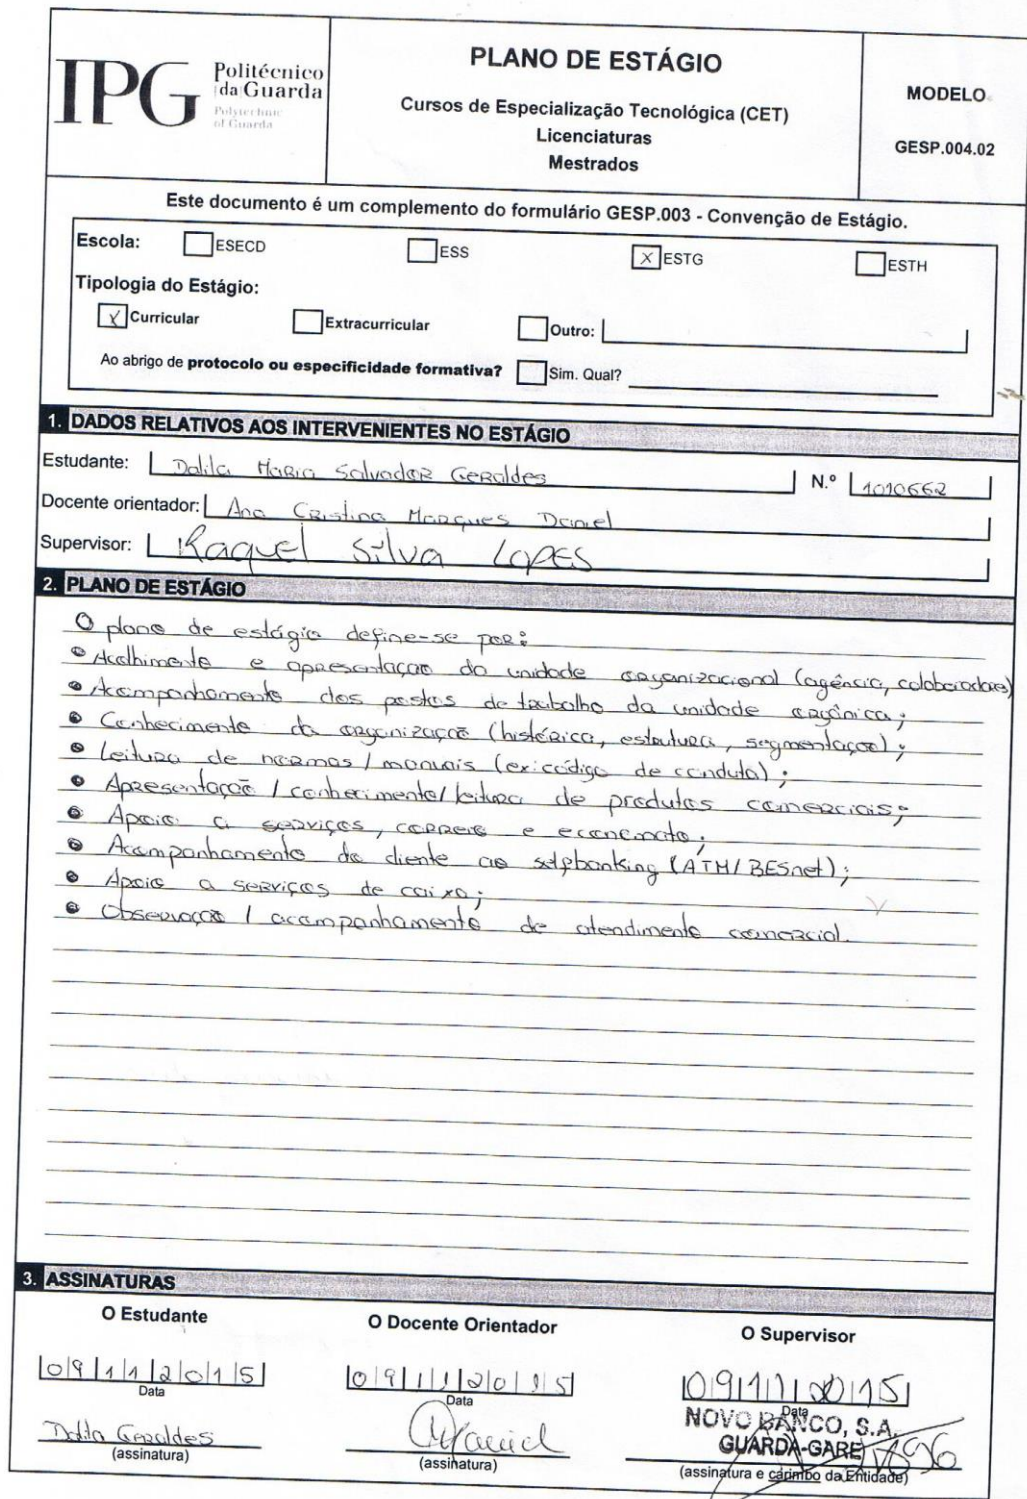 IPG Politécnico
da Guarda
Polytechnic
of Guarda
PLANO DE ESTÁGIO
Cursos de Especialização Tecnológica (CET)
Licenciaturas
Mestrados
MODELO
GESP.004.02
Este documento é um complemento do formulário GESP.003 - Convenção de Estágio.
Escola: ESECD ESS X ESTG ESTH
Tipologia do Estágio:
X Curricular Extracurricular Outro:
Ao abrigo de protocolo ou especificidade formativa? Sim. Qual?
1. DADOS RELATIVOS AOS INTERVENIENTES NO ESTÁGIO
Estudante: Dalila Maria Salvador Geraldes N.º 1010662
Docente orientador: Ana Cristina Marques Daniel
Supervisor: Raquel Silva Lopes
2. PLANO DE ESTÁGIO
O plano de estágio define-se por:
• Acolhimento e apresentação da unidade organizacional (agência, colaboradores)
• Acompanhamento dos postos de trabalho da unidade orgânica;
• Conhecimento da organização (histórica, estrutura, segmentação);
• Leitura de normas / manuais (ex: código de conduta);
• Apresentação / conhecimento / leitura de produtos comerciais;
• Apoio a serviços, correio e economato;
• Acompanhamento do cliente ao selfbanking (ATM / BESnet);
• Apoio a serviços de caixa;
• Observação / acompanhamento de atendimento comercial.
3. ASSINATURAS
O Estudante O Docente Orientador O Supervisor
09112015 09112015 09112015
Data Data Data
NOVO BANCO, S.A.
GUARDA-GARE
Dalila Geraldes
(assinatura) (assinatura) (assinatura e carimbo da Entidade)